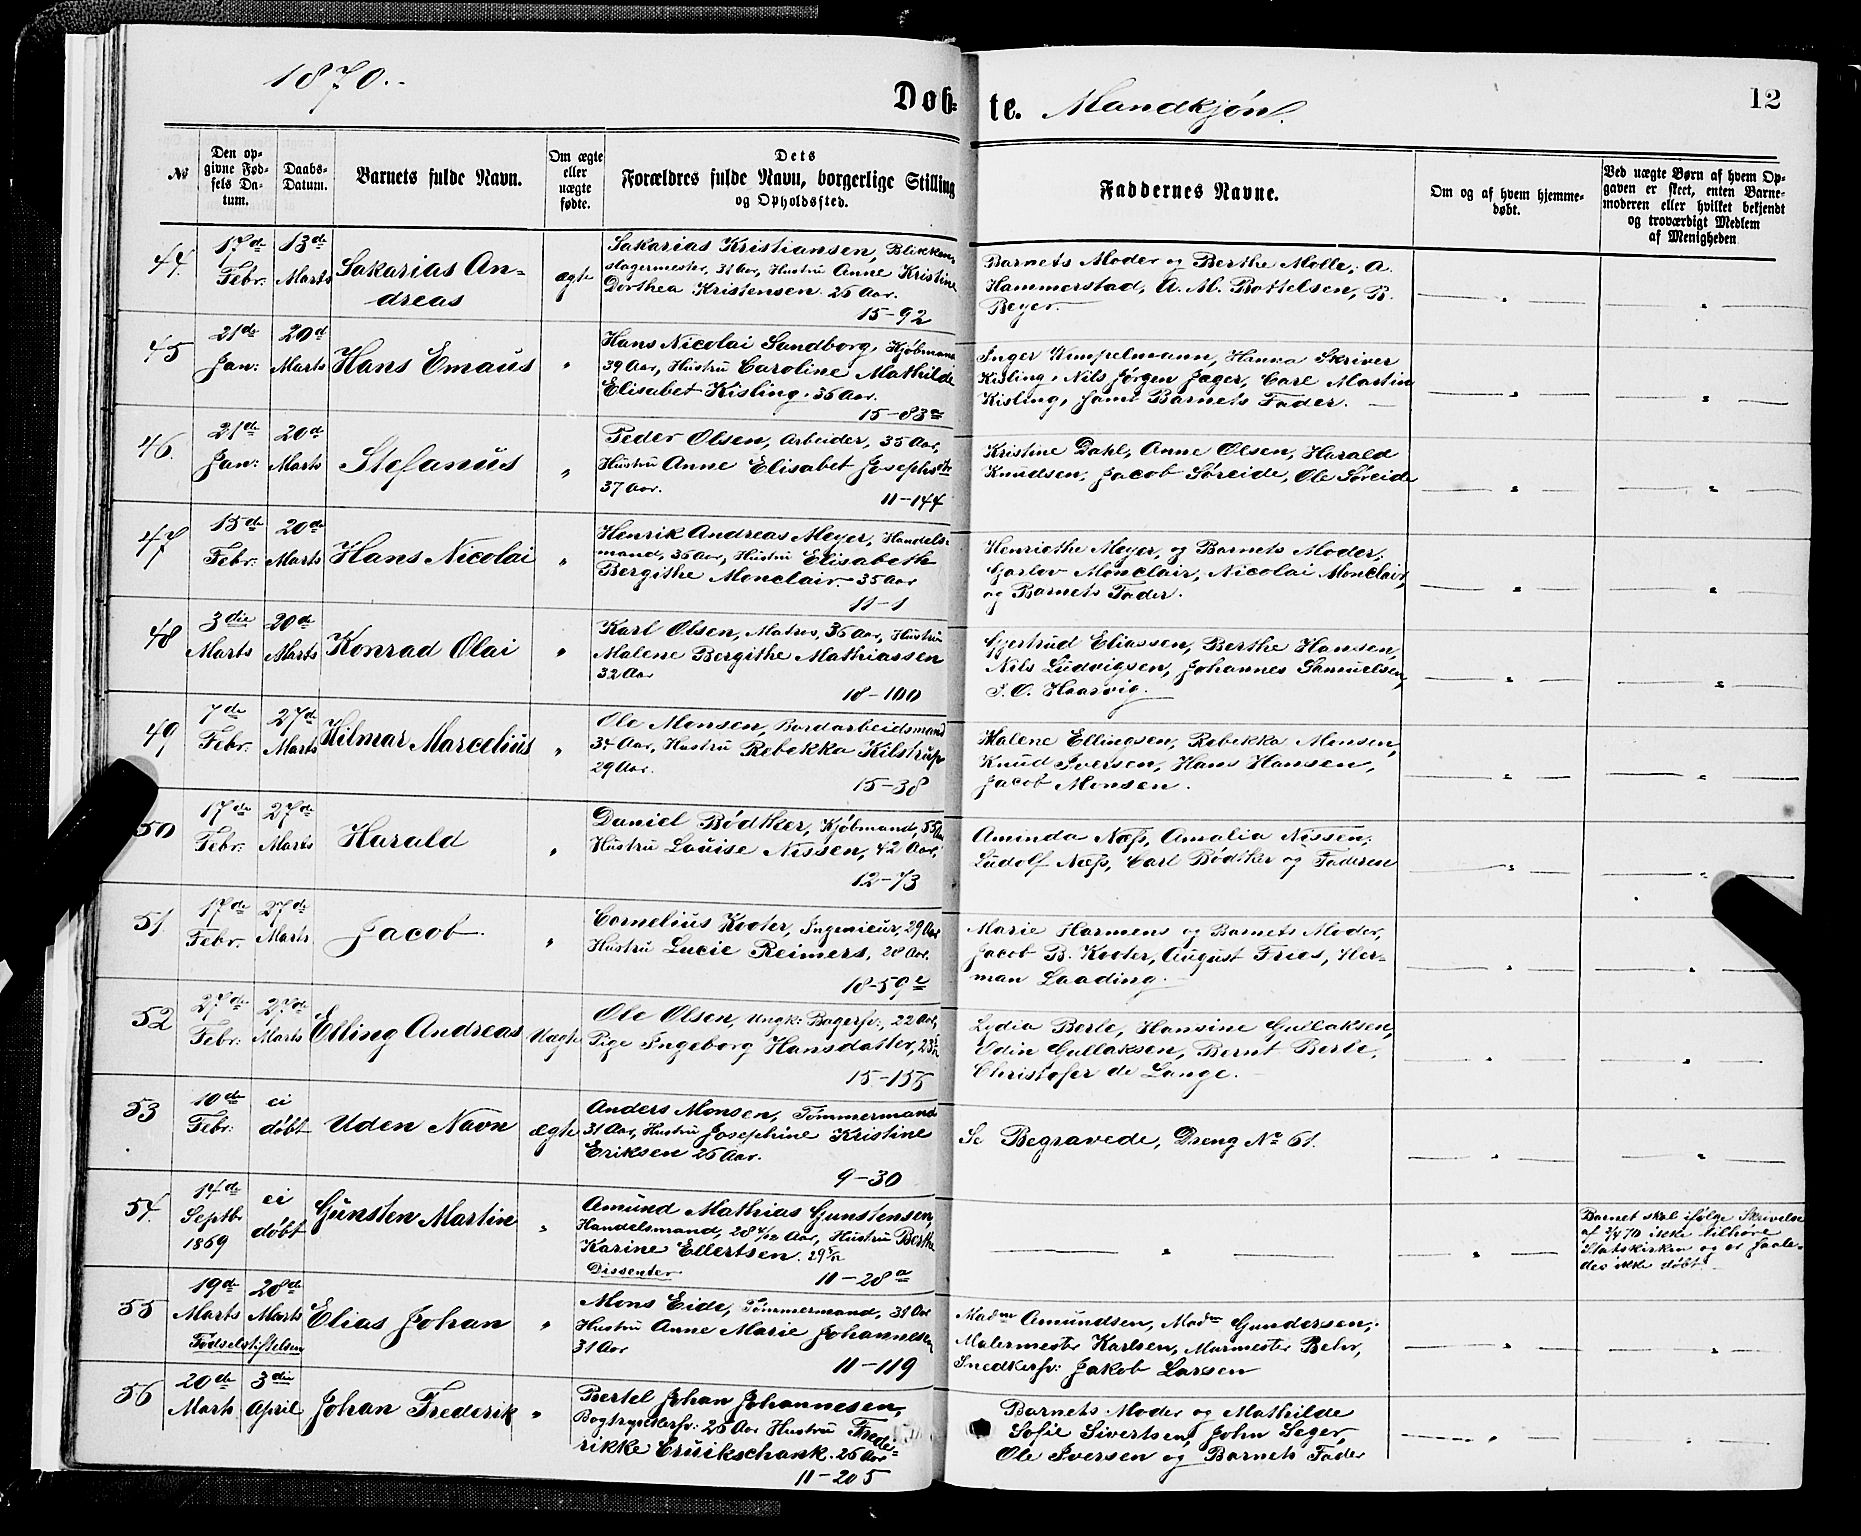 1870.
Døb-
te. Mandkjøn.
12
№
Den op-
givne Fød-
sels Da-
tum.
Daabs-
Datum.
Barnets fulde Navn.
Om ægte
eller
uægte
fødte.
Dets
Forældres fulde Navn, borgerlige Stilling
og Opholdssted.
Faddernes Navne.
Om og af hvem hjemme-
døbt.
Ved uægte Børn af hvem Op-
gaven er skeet, enten Barne-
moderen eller hvilket bekjendt
og troværdigt Medlem
af Menigheden
44.
17de
Febr.
13de
Marts
Sakarias An-
dreas
ægte
Sakarias Kristiansen, Blikken-
slagermester, 31 Aar, Hustru Anne Kristine
Dorthea Kristensen. 25 Aar.
15-92
Barnets Moder og Berthe Molle, A.
Hammerstad, A. M. Bottelsen, B.
Beyer.
45
21de
Jan:
20de
Marts
Hans Emaus
"
Hans Nicolai Sandborg, Kjøbmand
39 Aar, Hustru Caroline Mathilde
Elisabet Kisling. 36 Aar.
15-83
Inger Wimpelmann, Hanna Skriver
Kisling, Nils Jørgen Jæger, Carl Martin
Kisling, samt Barnets Fader.
46.
21de
Jan:
20de
Marts
Stefanus
"
Peder Olsen, Arbeider, 35 Aar,
Hustru Anne Elisabet Josephsdtr
37 Aar.
11-144
Kristine Dahl, Anne Olsen, Harald
Knudsen, Jacob Søreide, Ole Søreide
47
15de
Febr.
20de
Marts
Hans Nicolai
"
Henrik Andreas Meyer, Handels-
mand, 36 Aar, Hustru Elisabeth
Bergithe Monclair. 35 Aar
11-1
Henriethe Meyer, og Barnets Moder,
Garlov Monclair, Nicolai Monclair,
og Barnets Fader.
48
3die
Marts
20de
Marts
Konrad Olai
"
Karl Olsen, Matros, 36 Aar, Hustru
Malene Bergithe Mathiassen
32 Aar
18-100
Gjertrud Eliassen, Berthe Hansen,
Nils Ludvigsen, Johannes Samuelsen,
S. O. Haarvig.
49,
7de
Febr.
27de
Marts
Hilmar Marcelius
"
Ole Monsen, Bordarbeidsmand
34 Aar, Hustru Rebekka Kilstrup
29 Aar.
15-38
Malene Ellingsen, Rebekka Monsen,
Knud Iversen, Hans Hansen,
Jacob Monsen.
50
17de
Febr:
27de
Marts
Harald
"
Daniel Bødtker, Kjøbmand, 55 Aar
Hustru Louise Nissen, 42 Aar,
12-73
Aminda Næss, Amalia Nissen,
Ludolf Næss, Carl Bødtker og Faderen
51
17de
Febr.
27de
Marts
Jacob.
"
Cornelius Kooter, Ingenieur, 29 Aar
Hustru Lucie Reimers, 28 Aar.
18-59
Marie Harmens og Barnets Moder,
Jacob B. Kooter, August Fries, Her-
man Laading.
52
27de
Febr.
27de
Marts
Elling Andreas
Uægte
Ole Olsen, Ungk: Bagersv:, 22 Aar,
Pige Ingeborg Hansdatter, 23
15-155
Lydia Berle, Hansine Gullaksen,
Edin Gullaksen, Bernt Berle,
Christofer de Lange.
53
10de
Febr:
ei
døbt
Uden Navn
ægte
Anders Monsen, Tømmermand
31 Aar, Hustru Josephine Kristine
Eriksen 25 Aar.
9-30
Se Begravede, Dreng No 61.
54.
14de
Septbr
1869
ei
døbt
Gunsten Martin
"
Amund Mathias Gunstensen,
Handelsmand, 28 4/12 Aar, Hustru Berthe
Karine Ellertsen. 29
Dissenter.
11-28a
Barnet skal ifølge Skrivelse
af 2/4 70 ikke tilhøre
Statskirken og er saale-
des ikke døbt.
55
19de
Marts
28de
Marts
Fødselsstiftelsen
Elias Johan
"
Mons Eide, Tømmermand, 31 Aar
Hustru Anne Marie Johannesen
31 Aar
11-119
Madm Amundsen, Madm Gundersen,
Malermester Karlsen, Murmester Behr,
Snedkersv: Jakob Larsen
56
20de
Marts
3die
April
Johan Frederik
"
Bertel Johan Johannesen,
Bogtrykkersv: 25 Aar Hustru Frede-
rikke Erurikschank. 26 Aar
11-205
Barnets Moder og Mathilde
Sofie Sivertsen, John Seger,
Ole Iversen og Barnets Fader